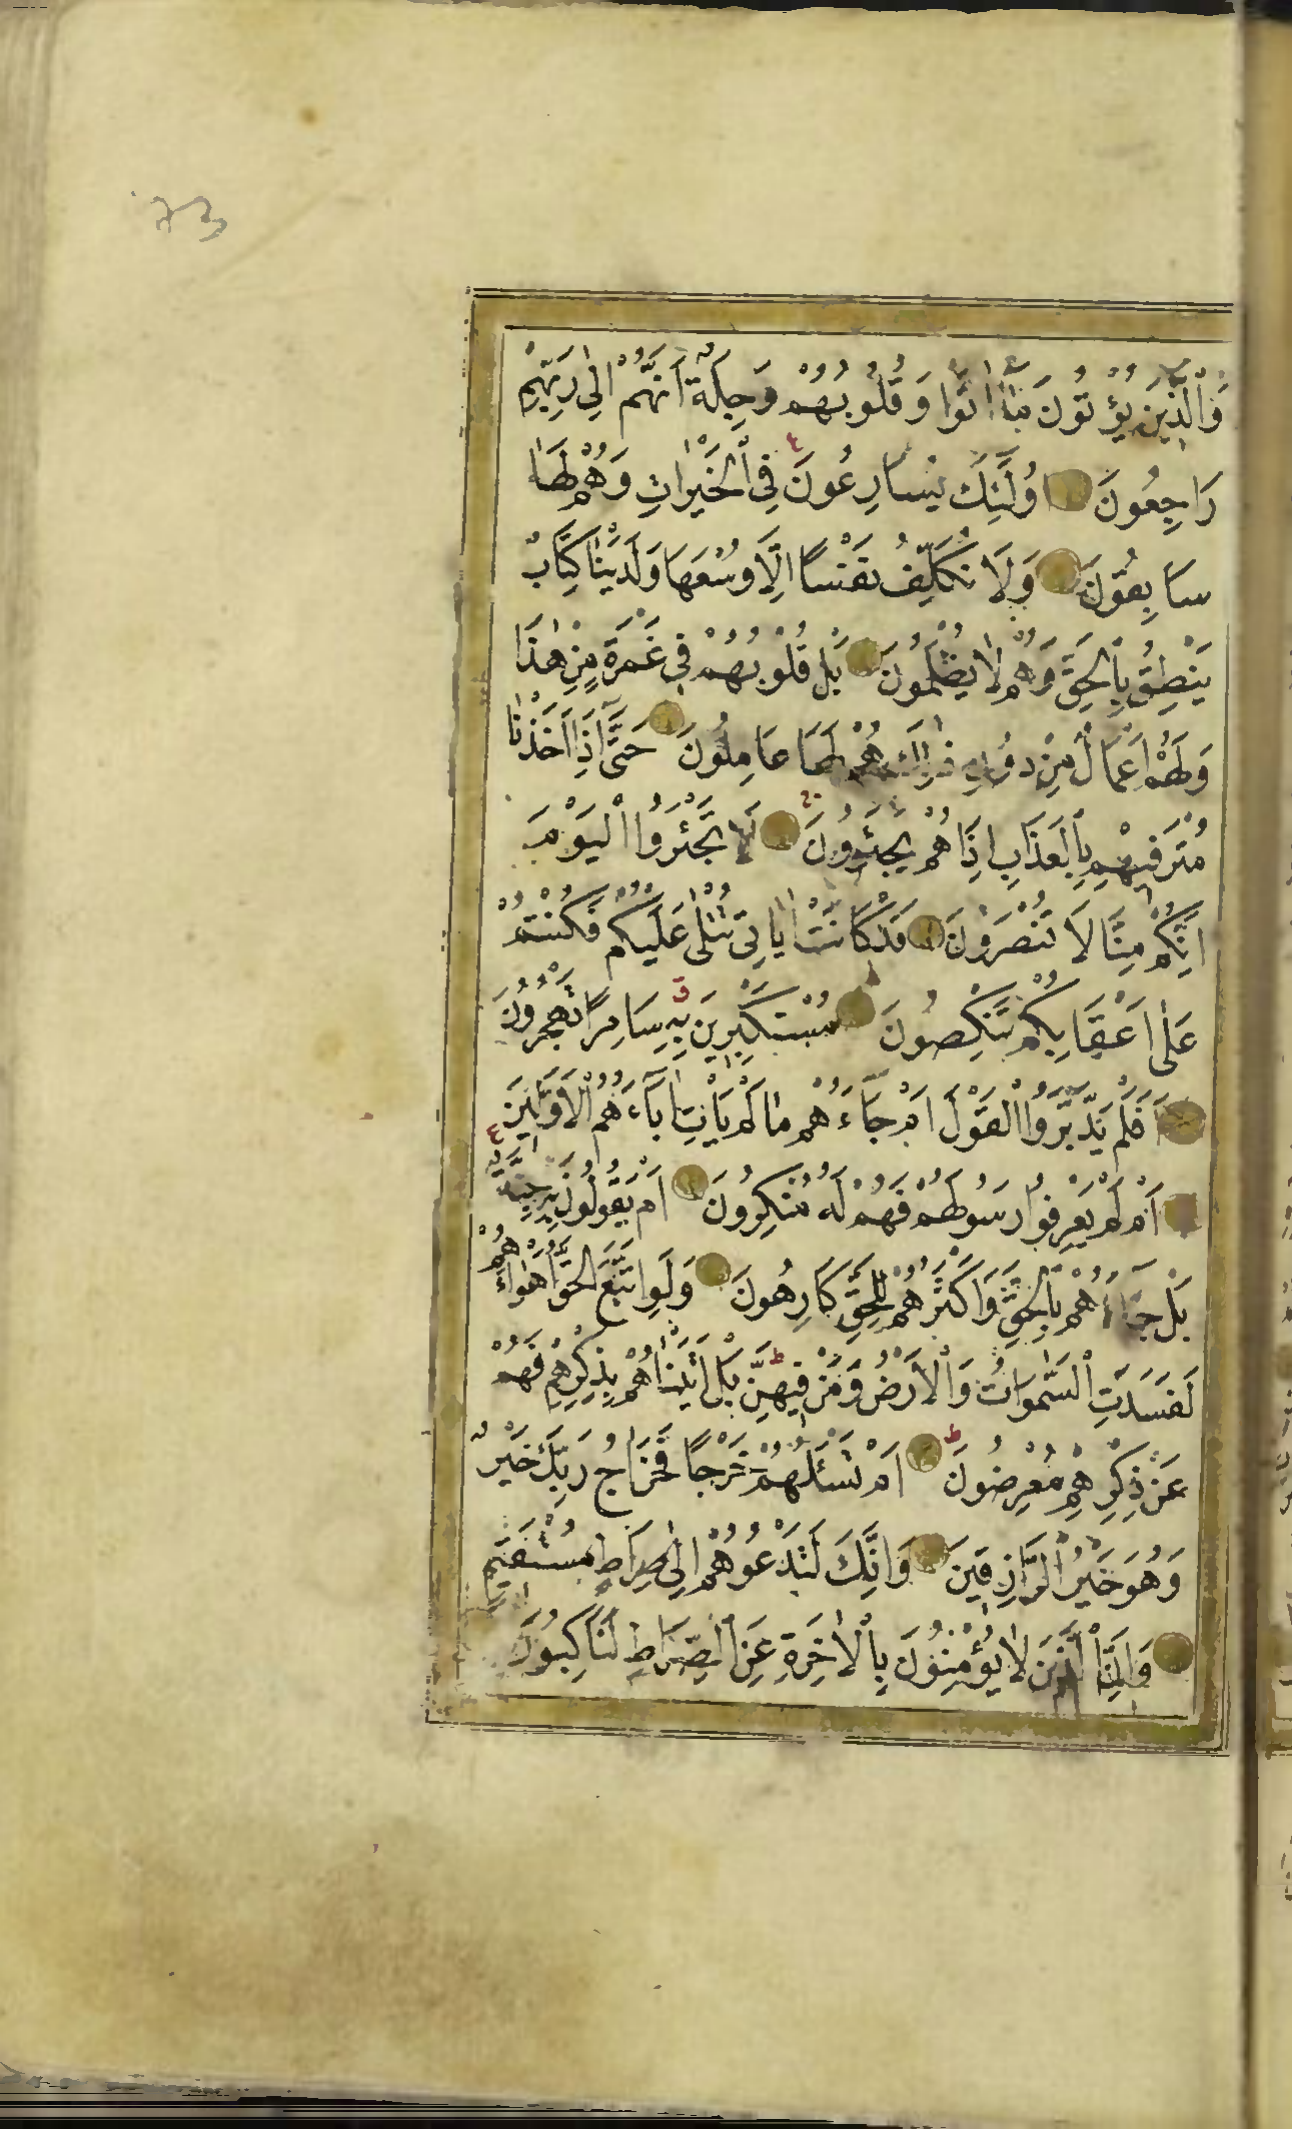 وَالَّذِينَ يُؤْتُونَ مَآ اٰتَوْا وَقُلُوبُهُمْ وَجِلَةٌ اَنَّهُمْ اِلٰى رَبِّهِمْ
رَاجِعُونَ اُولٰٓئِكَ يُسَارِعُونَ فِي الْخَيْرَاتِ وَهُمْ لَهَا
سَابِقُونَ وَلَا نُكَلِّفُ نَفْسًا اِلَّا وُسْعَهَا وَلَدَيْنَا كِتَابٌ
يَنْطِقُ بِالْحَقِّ وَهُمْ لَا يُظْلَمُونَ بَلْ قُلُوبُهُمْ فِي غَمْرَةٍ مِنْ هٰذَا
وَلَهُمْ اَعْمَالٌ مِنْ دُونِ ذٰلِكَ هُمْ لَهَا عَامِلُونَ حَتَّى اِذَا اَخَذْنَا
مُتْرَفِيهِمْ بِالْعَذَابِ اِذَا هُمْ يَجْئَرُونَ لَا تَجْئَرُوا الْيَوْمَ
اِنَّكُمْ مِنَّا لَا تُنْصَرُونَ قَدْ كَانَتْ اٰيَاتِي تُتْلٰى عَلَيْكُمْ فَكُنْتُمْ
عَلٰى اَعْقَابِكُمْ تَنْكِصُونَ مُسْتَكْبِرِينَ بِهِ سَامِرًا تَهْجُرُونَ
اَفَلَمْ يَدَّبَّرُوا الْقَوْلَ اَمْ جَآءَهُمْ مَا لَمْ يَأْتِ اٰبَآءَهُمُ الْاَوَّلِينَ
اَمْ لَمْ يَعْرِفُوا رَسُولَهُمْ فَهُمْ لَهُ مُنْكِرُونَ اَمْ يَقُولُونَ بِهِ جِنَّةٌ
بَلْ جَآءَهُمْ بِالْحَقِّ وَاَكْثَرُهُمْ لِلْحَقِّ كَارِهُونَ وَلَوِ اتَّبَعَ الْحَقُّ اَهْوَاءَهُمْ
لَفَسَدَتِ السَّمٰوَاتُ وَالْاَرْضُ وَمَنْ فِيهِنَّ بَلْ اَتَيْنَاهُمْ بِذِكْرِهِمْ فَهُمْ
عَنْ ذِكْرِهِمْ مُعْرِضُونَ اَمْ تَسْئَلُهُمْ خَرْجًا فَخَرَاجُ رَبِّكَ خَيْرٌ
وَهُوَ خَيْرُ الرَّازِقِينَ وَاِنَّكَ لَتَدْعُوهُمْ اِلٰى صِرَاطٍ مُسْتَقِيمٍ
وَاِنَّ الَّذِينَ لَا يُؤْمِنُونَ بِالْاٰخِرَةِ عَنِ الصِّرَاطِ لَنَاكِبُونَ